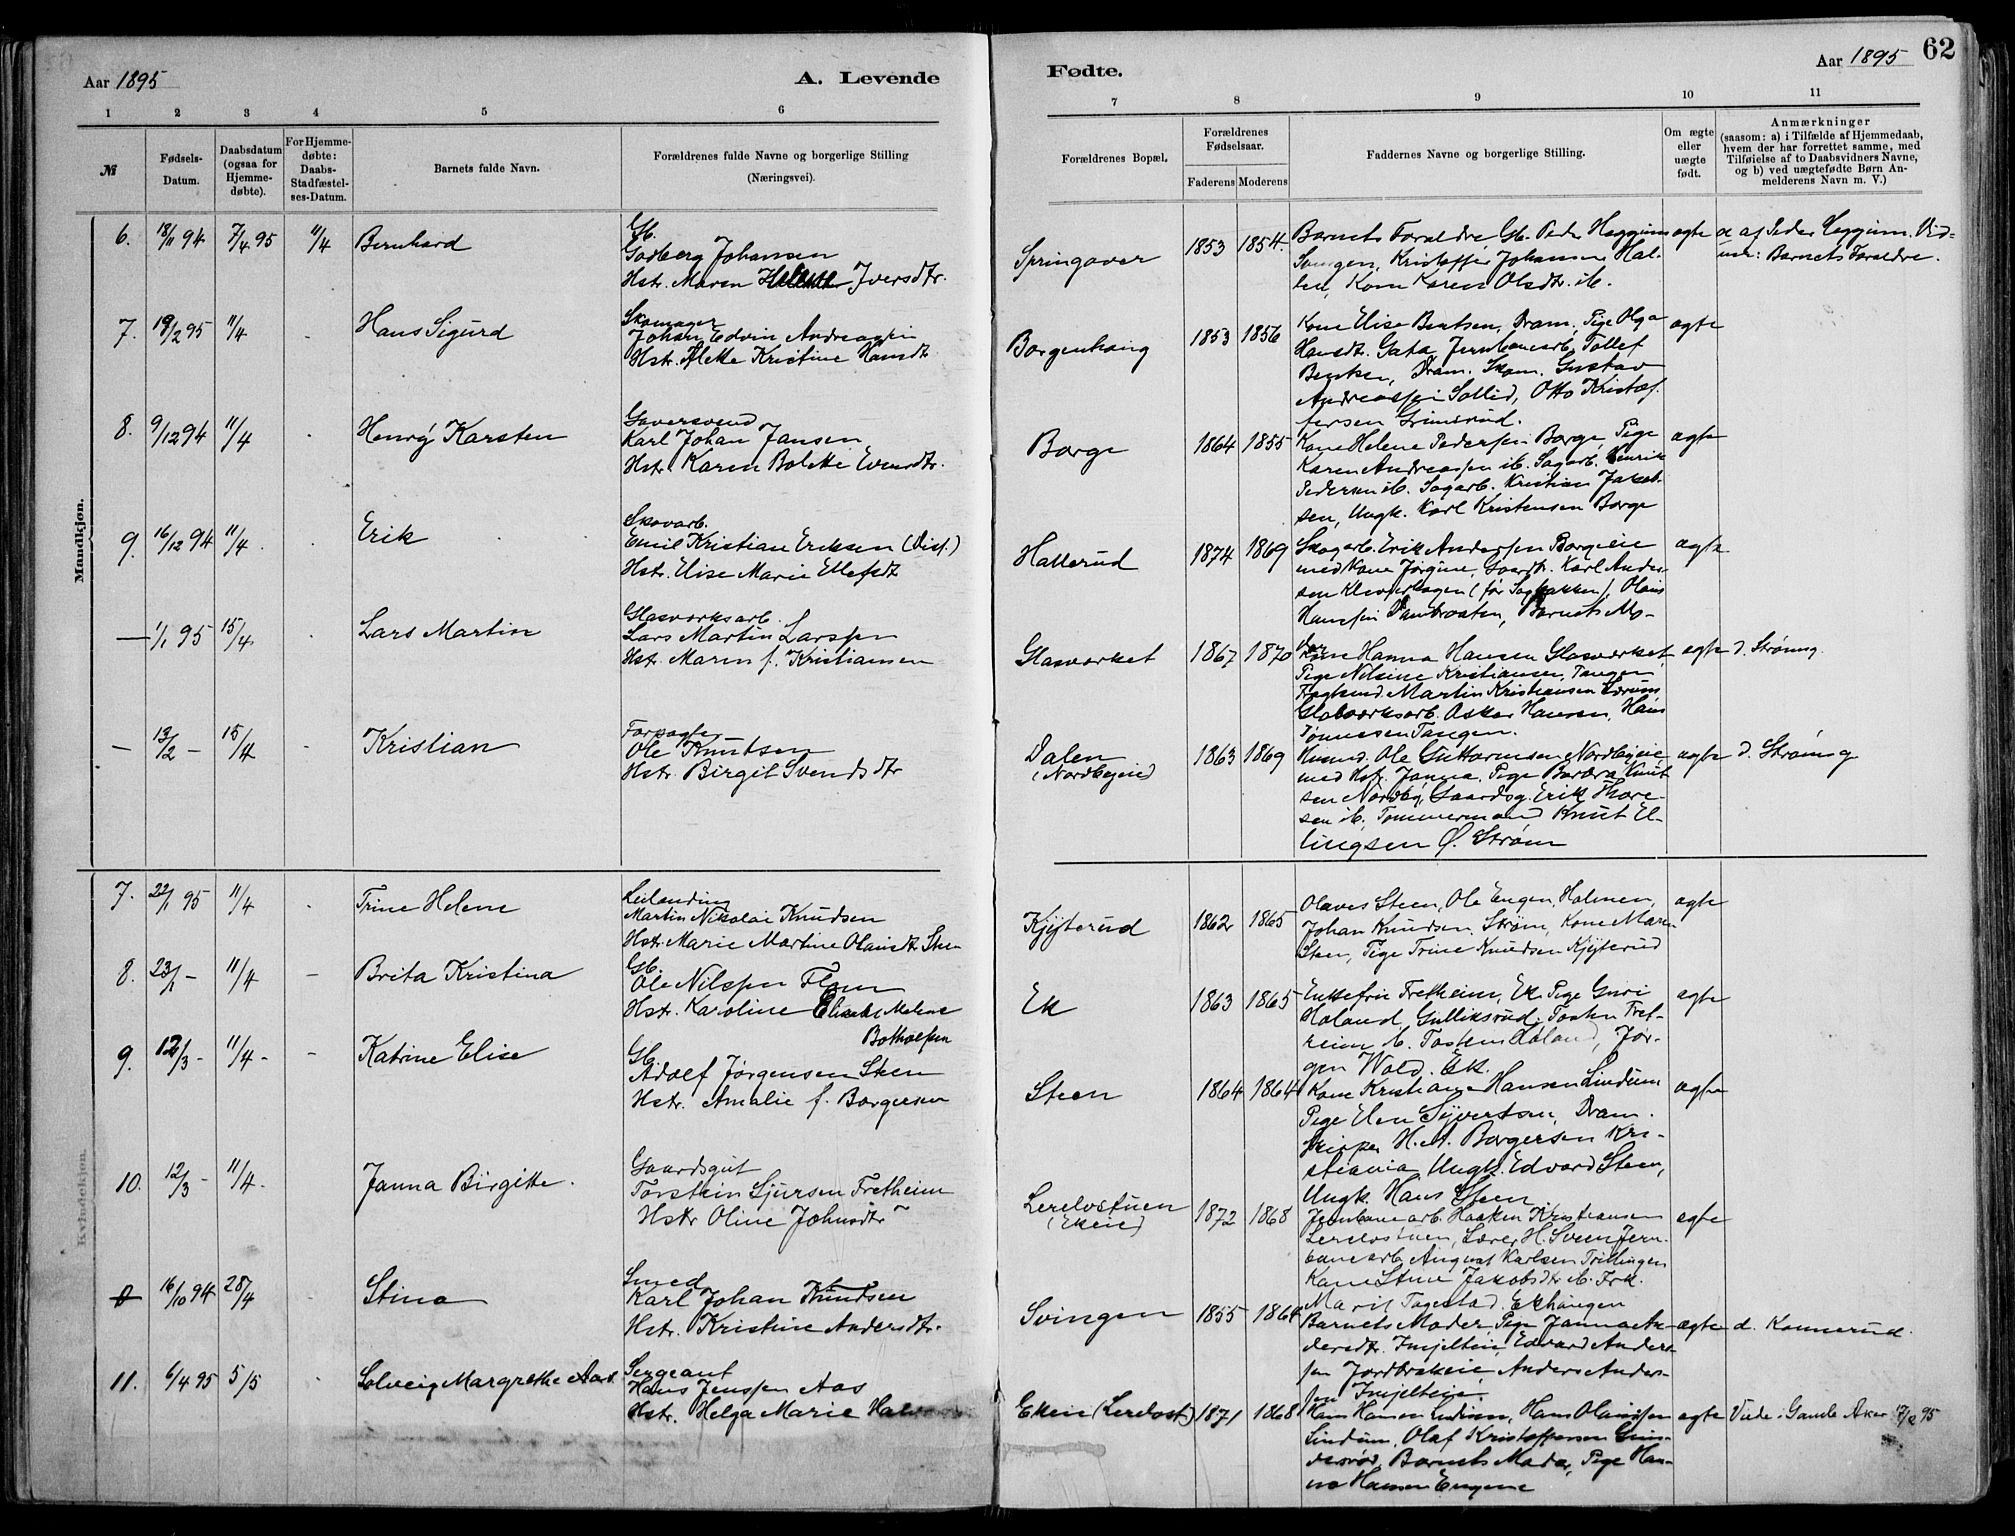 62
Aar 1895
A. Levende
Fødte.
Aar 1895
1 2 3 4 5 6 7 8 9 10 11
№
Fødsels-
Datum.
Daabsdatum
(ogsaa for
Hjemme-
døbte).
For Hjemme-
døbte:
Daabs-
Stadfæstel-
ses-Datum.
Barnets fulde Navn.
Forældrenes fulde Navne og borgerlige Stilling
(Næringsvei).
Forældrenes Bopæl.
Forældrenes
Fødselsaar.
Faderens Moderens
Faddernes Navne og borgerlige Stilling.
Om ægte
eller
uægte
født.
Anmærkninger
(saasom: a) i Tilfælde af Hjemmedaab,
hvem der har forrettet samme, med
Tilføielse af to Daabsvidners Navne,
og b) ved uægtefødte Børn An-
melderens Navn m. V.)
Mandkjøn.
6. 18/11 94 7/4 95 11/4 Bernhard
Gb.
Godberg Johansen
Hst. Maren Helene Iversdtr.
Springover 1853 1854.
Barnets Forældre, Gb. Peder Heggum
Svingen, Kristoffer Johansen Hal-
len, Kone Karen Olsdtr. ib.
ægte
a af Peder Heggum. Vid-
ner: Barnets Forældre.
7. 19/2 95 11/4 - Hans Sigurd
Skomager
Johan Edvin Andreassen
Hst. Aleke Kristine Hansdt.
Borgenhaug 1853 1856
Kone Elise Bentsen, Dram., Pige Olga
Hansdt. Gata, Jernbanearb. Tollef
Bentsen, Dram. Skom. Gustav
Andreassen Sollid, Otto Kristof-
fersen Grimsrud.
ægte
8. 9/12 94 11/4 - Henrÿ Karsten
Garversvend
Karl Johan Jansen
Hst. Karen Bolette Evensdtr.
Borge 1864 1855
Kone Helene Pedersen Borge, Pige
Karen Andreassen ib. Sagarb. Henrik
Pedersen ib. Sagarb. Kristian Jakob-
sen, Ungk. Karl Kristensen Borge
ægte
9. 16/12 94 11/4 Erik
Skovarb.
Emil Kristian Eriksen (Diss.)
Hst. Elise Marie Ellefsdt
Hallerud 1874 1869
Skogarb. Erik Andersen Borgeie
med Kone Jørgine, Gaardb. Karl Ander-
sen Kleverhagen (før Sagbakken), Olaus
Hansen Dambraaten, Barnets Mo-
der
ægte
— 1/1 95 15/4 - Lars Martin
Glasværksarb.
Lars Martin Larssen
Hst. Maren f. Kristiansen
Glasværket 1867 1870
Kone Hanna Hansen Glasværket,
Pige Nilsine Kristiansen, Tangen
Martin Kristiansen
Glasværksarb. Oskar Hansen, Hans
Tønnessen Tangen.
ægte d. Strømsg.
— 13/2 - 15/4 - Kristian
Forpagter
Ole Knutsen
Hst. Birgit Svendsdtr
Dalen
(Nordbyeie) 1863 1869
Husmd. Ole Guttormsen Nordbyeie,
med Hst. Janna, Pige Barbra Knut
sen Nordby, Gaardsg. Erik Thore-
sen ib., Tømmermand Knut El-
lingsen Ø. Strøm
ægte d. Strømsg
Kvindekjøn.
7. 22/1 95 11/4 - Trine Helene
Leilending
Martin Nikolai Knudsen
Hst. Marie Martine Olausdt. Steen
Kjÿterud 1862 1865
Olaves Steen, Ole Engen, Holmen,
Johan Knudsen, Strøm, Kone Maren
Steen, Pige Trine Knudsen Kjÿterud
ægte
8. 23/1 - 11/4 - Brita Kristina
Gb.
Ole Nilssen Flom
Hst. Karoline Elisabet Malene
Botholfsen
Ek 1863 1865
Enkefru Fretheim, Ek, Pige Guri
Holand, Gulliksrud, Tosten Fret-
heim ib. Tosten Holand, Jør-
gen Wold, Ek.
ægte
9. 12/3 - 11/4 - - Katrine Elise
Gb.
Adolf Jørgensen Steen
Hst. Amalie f. Borgersen
Steen 1864 1864
Kone Kristiane Hansen Lindum
Pige Elen Sÿvertsen, Dram.
Skipper H. A. Borgersen Kri-
stiania Ungk. Edvard Steen,
Ungk. Hans Steen.
ægte
10. 12/3 - 11/4 - Janna Birgitte.
Gaardsgut
Torstein Sjursen Fretheim
Hst. Oline Johnsdtr
Lerelvstuen
(Ekeie) 1872 1868
Jernbanearb. Haaken Kristiansen
Lerelvstuen, Lærer H. Sveen, Jern-
banearb. August Karlsen Trillingen
Kone Stine Jakobsdtr ib. Frk.
Marit Tagestad, Ekhaugen
ægte
0 16/10 94 28/4 - Stina
Smed
Karl Johan Knudsen
Hst. Kristine Andersdtr.
Svingen 1855 1864
Barnets Moder, Pige Janna An-
dersdt. Imjelteie, Edvard Anders-
sen Jordbrekeie, Anders Anders-
sen Imjelteie.
ægte d. Konnerud.
11. 6/4 95 5/5 - Solveig Margrethe Aas.
Sergeant
Hans Jenssen Aas
Hst. Helga Marie
Ekeie (Lerelvst.) 1871 1868
Hans Hansen Lindum, Hans Olaussen
Lindum, Olaf Kristoffersen Gun-
dersrød, Barnets Moder, Pige Han-
na Hansen Engene
ægte Viede i Gamle Aker 17/2 95